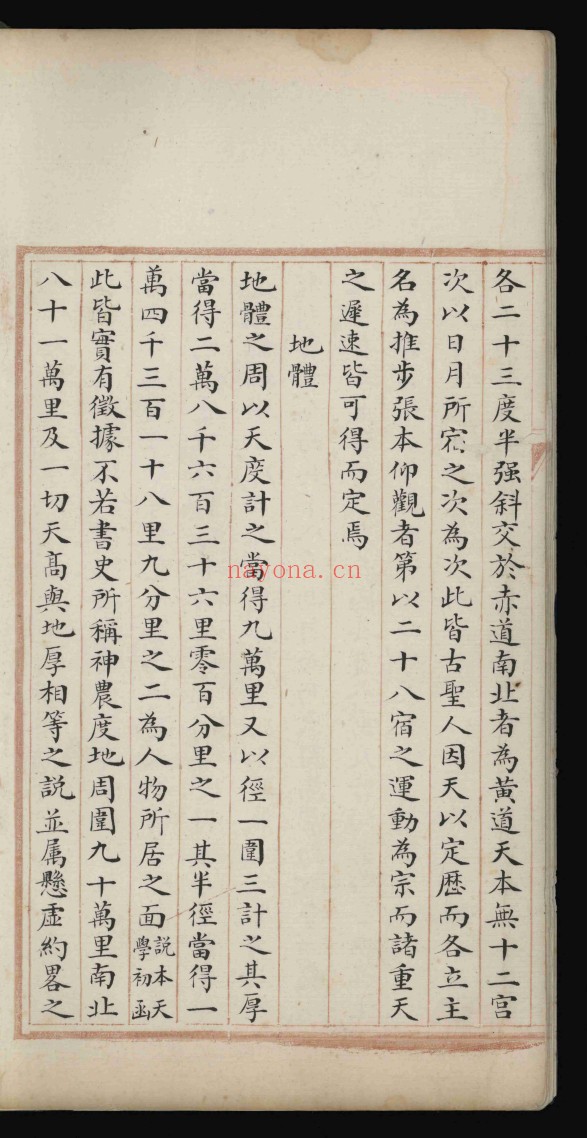 各二十三度半强斜交於赤道南北者為黄道天本無十二宫
次以日月所宿之次為次此皆古聖人因天以定歴而各立主
名為推步張本仰觀者第以二十八宿之運動為宗而諸重天
之遲速皆可得而定焉
地體
地體之周以天度計之當得九萬里又以徑一圍三計之其厚
當得二萬八千六百三十六里零百分里之一其半徑當得一
萬四千三百一十八里九分里之二為人物所居之面説本天學初函
此皆實有徵據不若書史所稱神農度地周圍九十萬里南北
八十一萬里及一切天髙與地厚相等之説並属懸虚約畧之
nayona.cn